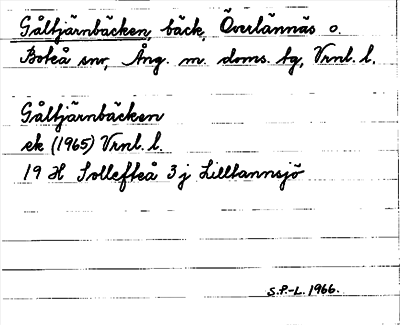 Gåltjärnbäcken, bäck, Överlännäs o.
Boteå snr, Ång. m. doms. tg, Vrnl. l.
Gåltjärnbäcken
ek (1965) Vrnl. l.
19 H Sollefteå 3 j Lillhannsjö
S.P-L. 1966.